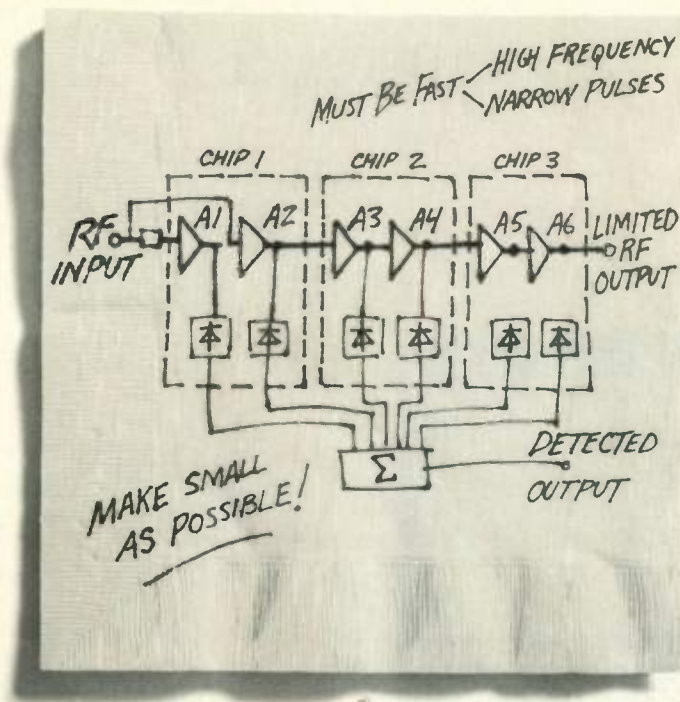 MUST BE FAST
HIGH FREQUENCY
NARROW PULSES
CHIP 1
CHIP 2
CHIP 3
A1
A2
A3
A4
A5
A6
RF
INPUT
LIMITED
RF
OUTPUT
Σ
DETECTED
OUTPUT
MAKE SMALL
AS POSSIBLE!